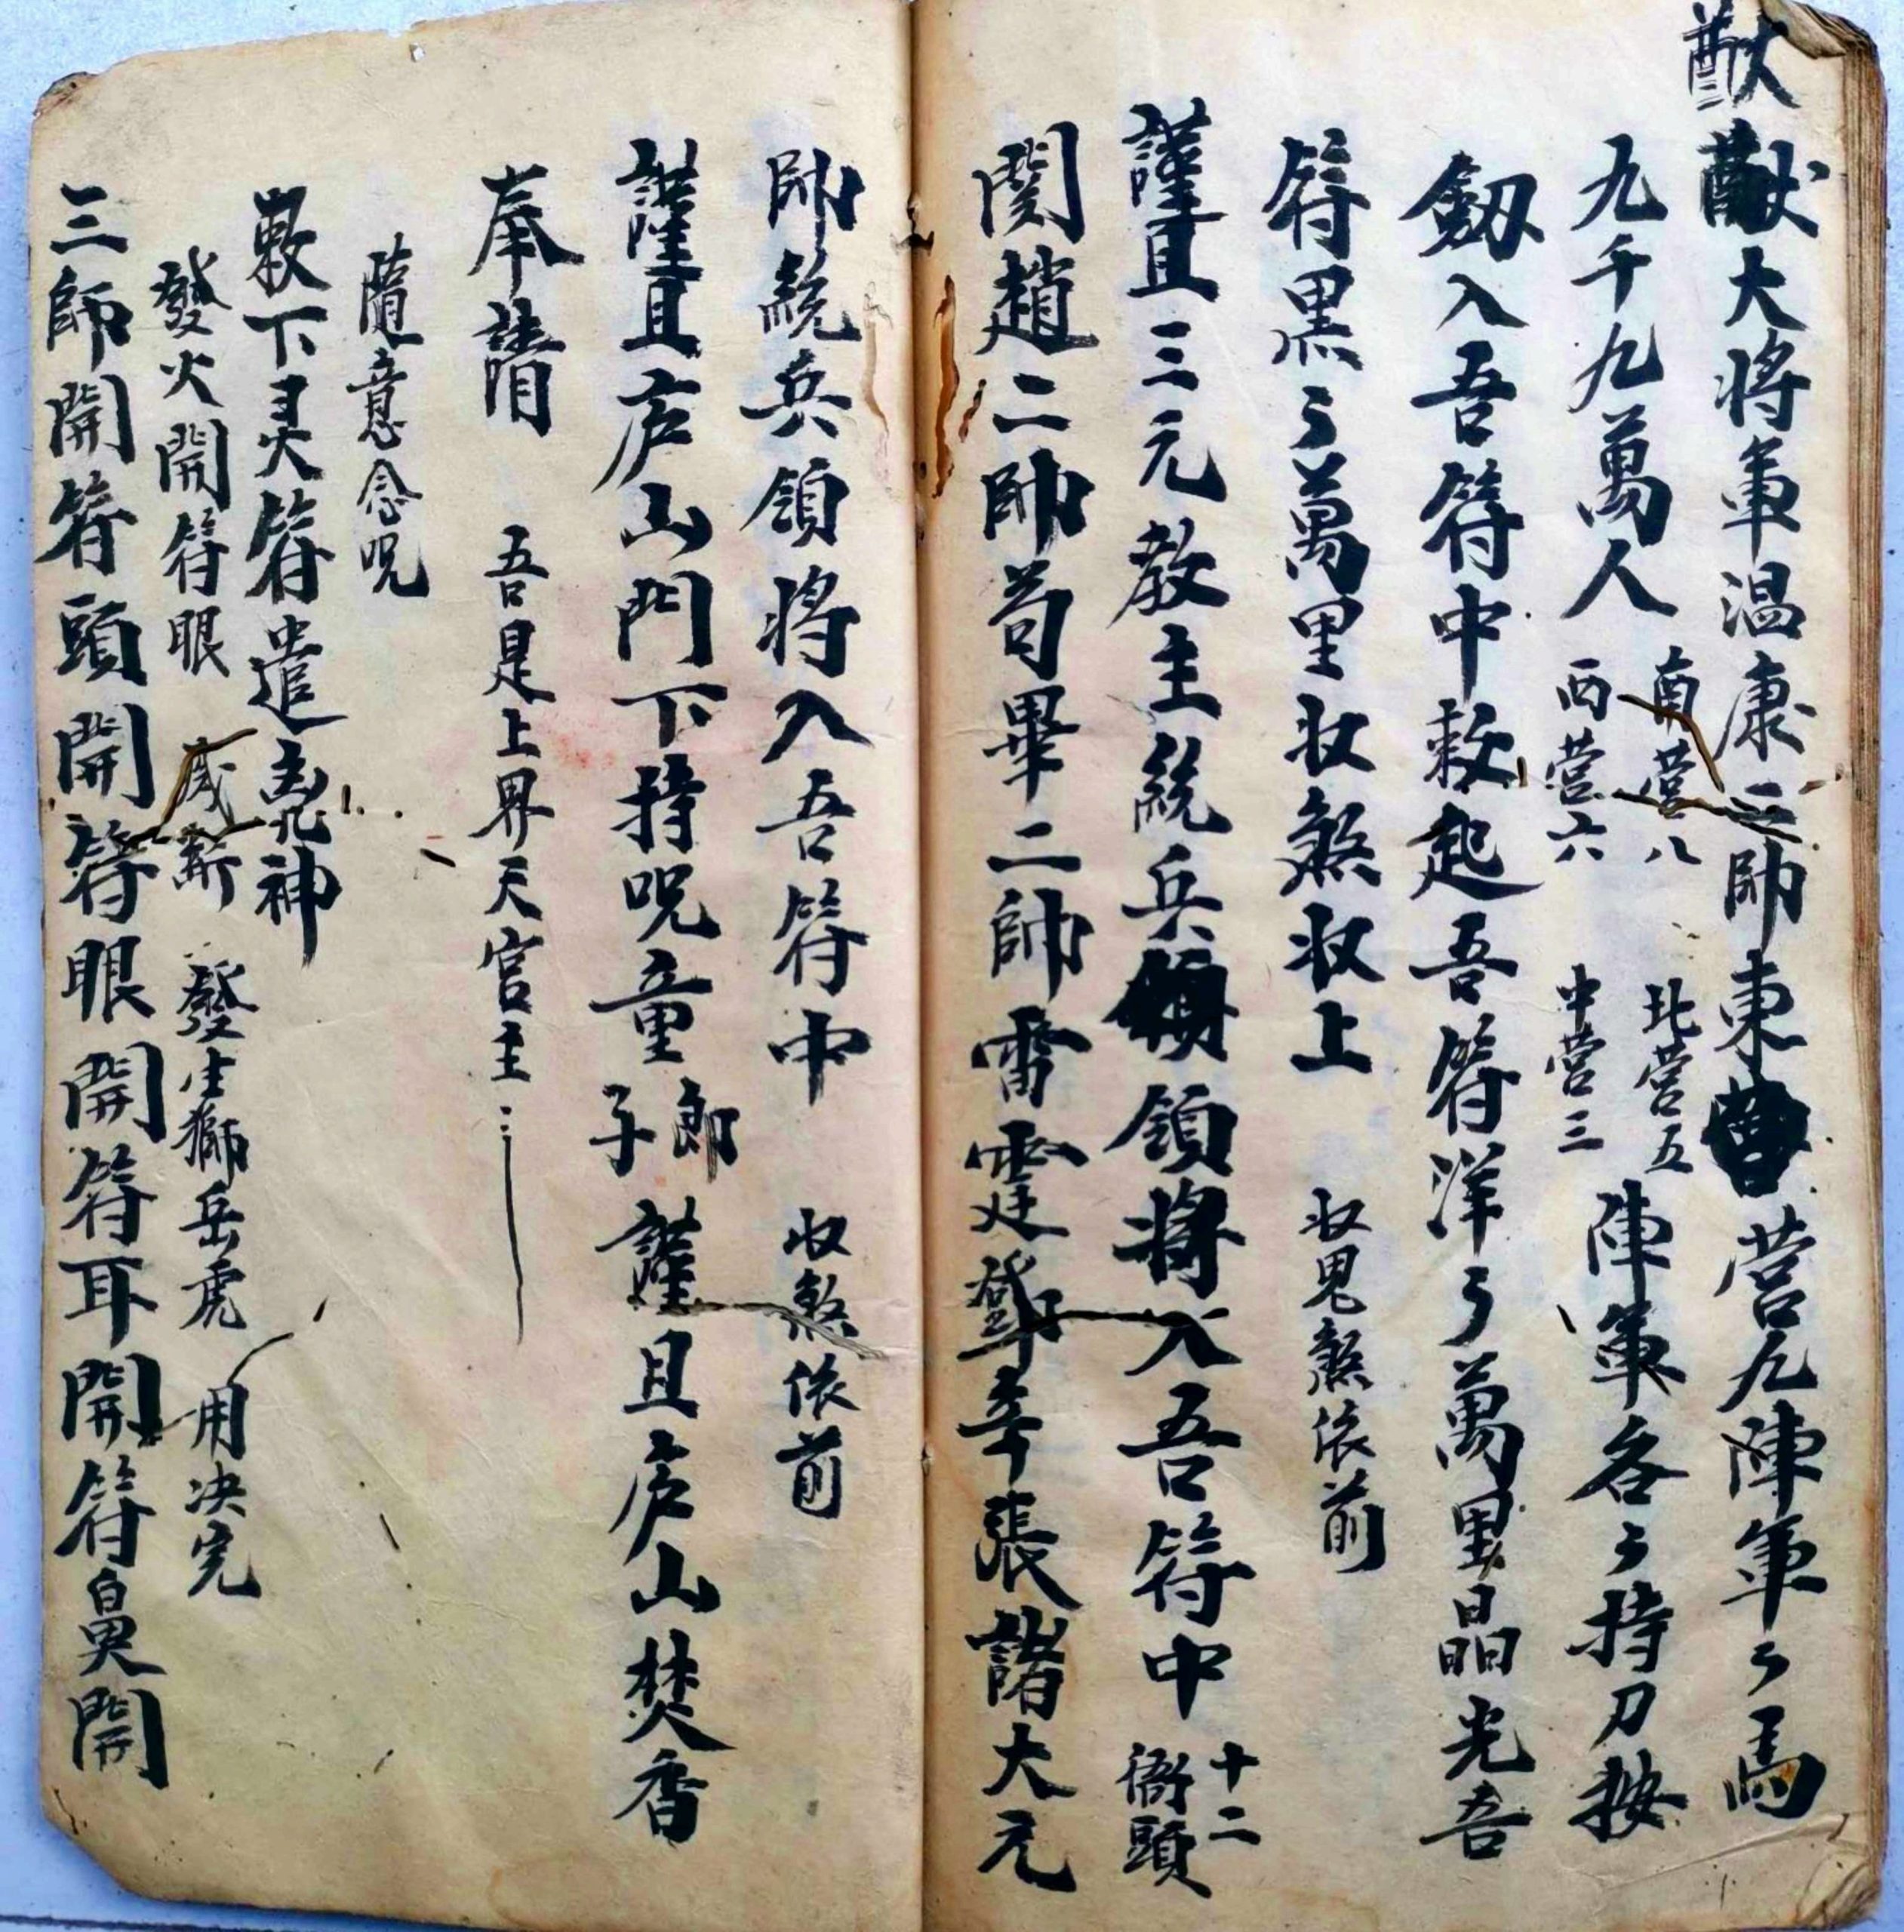 猷
猷大將軍温康二帥東營九陣軍々馬
九千九萬人 南营八 西营六 北营五 中营三 陣軍各々持刀按
劔入吾符中敕起吾符洋々萬里晶光吾
符黑々萬里收煞收上 收鬼煞依前
謹且三元教主統兵領將入吾符中 十二衙頭
関趙二帥苟畢二帥雷霆鄧辛張諸大元
帥統兵領將入吾符中 收煞依前
謹且庐山門下持呪童郎子 謹且庐山焚香
奉請 吾是上界天宫主…
隨意念呪
敕下灵符遣神
發火開符眼 發生獅岳虎 用决完
三師開符頭開符眼開符耳開符鼻開